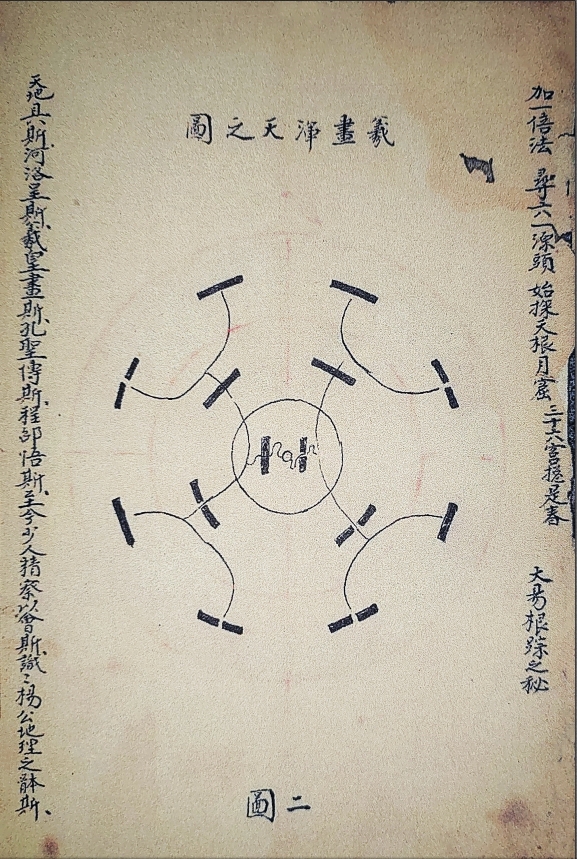 羲畫渾天之圖
加一倍法 尋六一源頭 始探天根月窟 三十六宮摠是春 大易根踪之秘
天地具斯、河洛呈斯、羲皇畫斯、孔聖傳斯、程邵悟斯、至今少人精察以會斯、識〻楊公地理之骵斯、
二圖